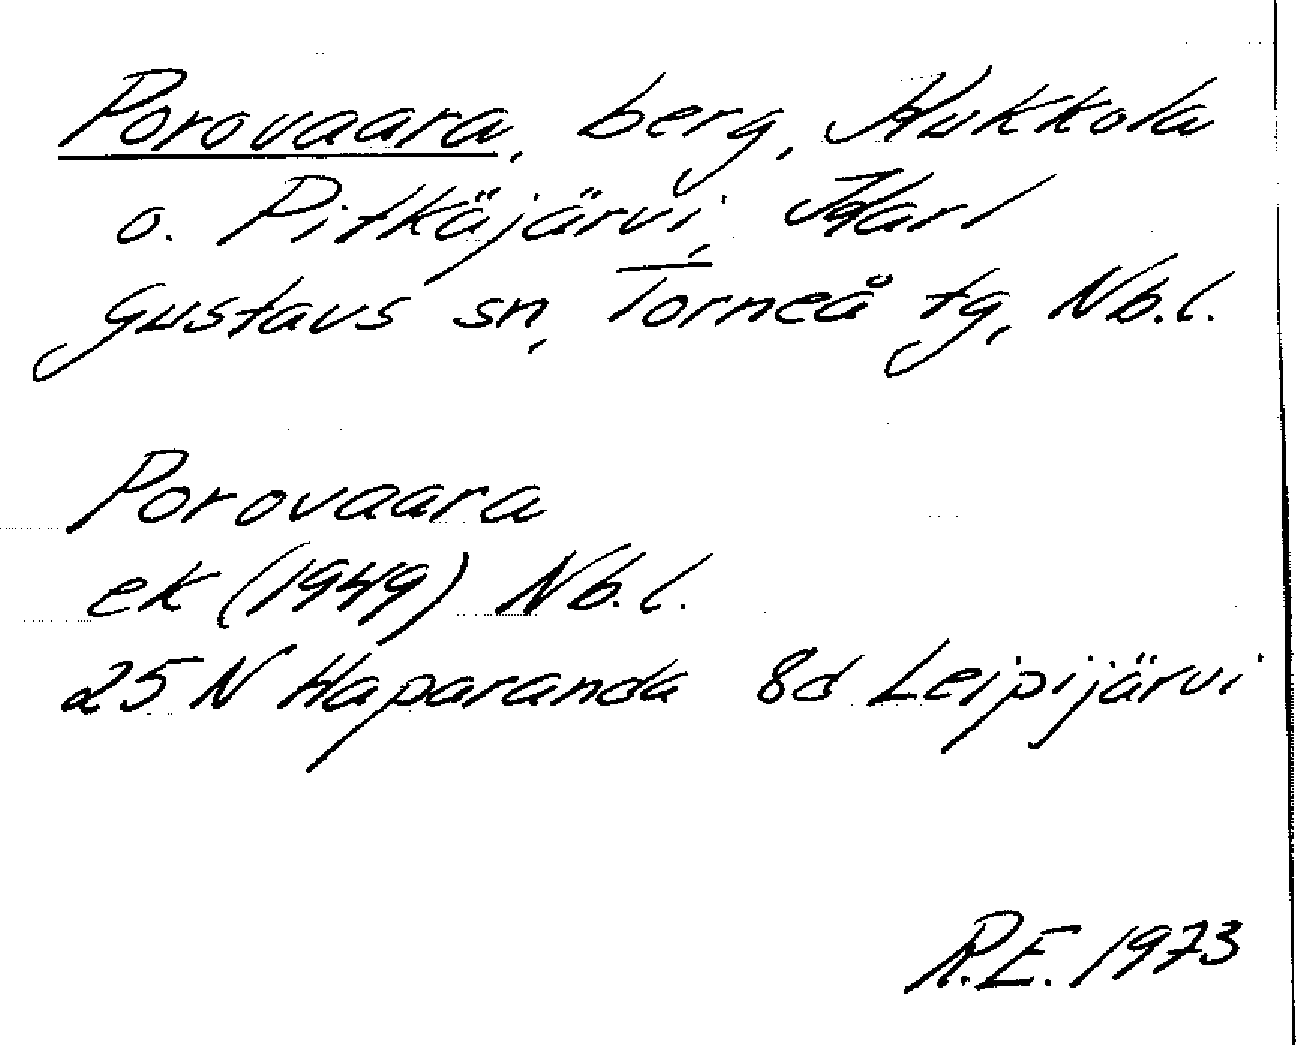 Porovaara, berg, Kukkola
o. Pitkäjärvi, Karl
Gustavs sn, Torneå tg, Nb.l.
Porovaara
ek (1949) Nb.l.
25 N Haparanda 8d Leipijärvi
R.E. 1973